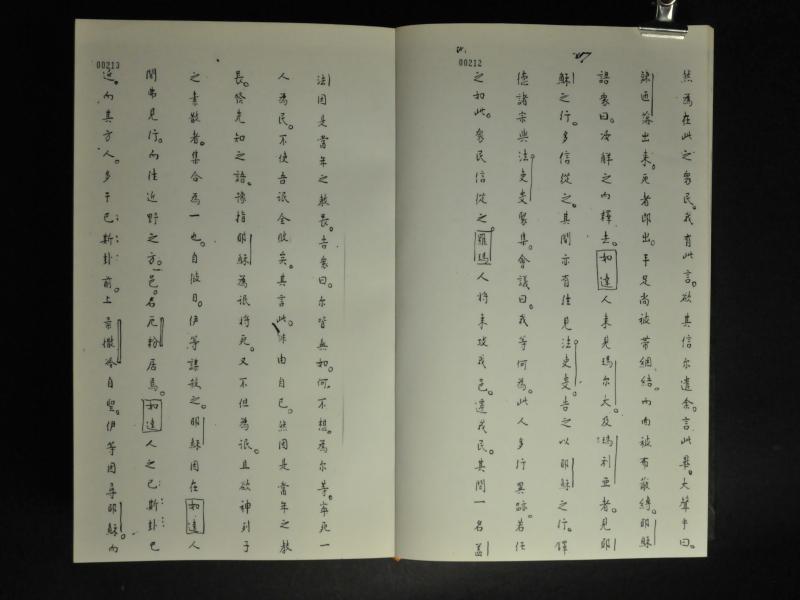 00212
然為在此之眾民。我有此言。欲其信尔遣余。言此畢。大聲乎曰。
竦西落出来。死者即出。手足尚被帶綑縛。而面被布蔽縛。耶穌
語眾曰。汝解之而釋去。如達人来見瑪尔大及瑪利亞者。見耶
穌之行。多信從之。其間亦有往見法吏叟。告之以耶穌之行。鐸
德諸宗與法吏叟聚集。會議曰。我等何為。此人多行異跡。若任
之如此。眾民信從之。羅瑪人將来攻我邑。遷我民。其間一名盖
00213
法因是當年之教長。告眾曰。尔皆無知。何不想。為尔等。寧死一
人為民。不使吾氓全敗矣。其言此。非由自己。然因是當年之教
長。啓先知之語。豫指耶穌為氓將死。又不但為氓。且欲神列子
之素散者。集合為一也。自彼日。伊等謀殺之。耶穌因在如達人
間弗見行。而往近野之方。一邑。名厄粉居焉。如達人之巴斯卦已
近。而其方人。多于巴斯卦前。上柔撒冷自聖。伊等因尋耶穌。而